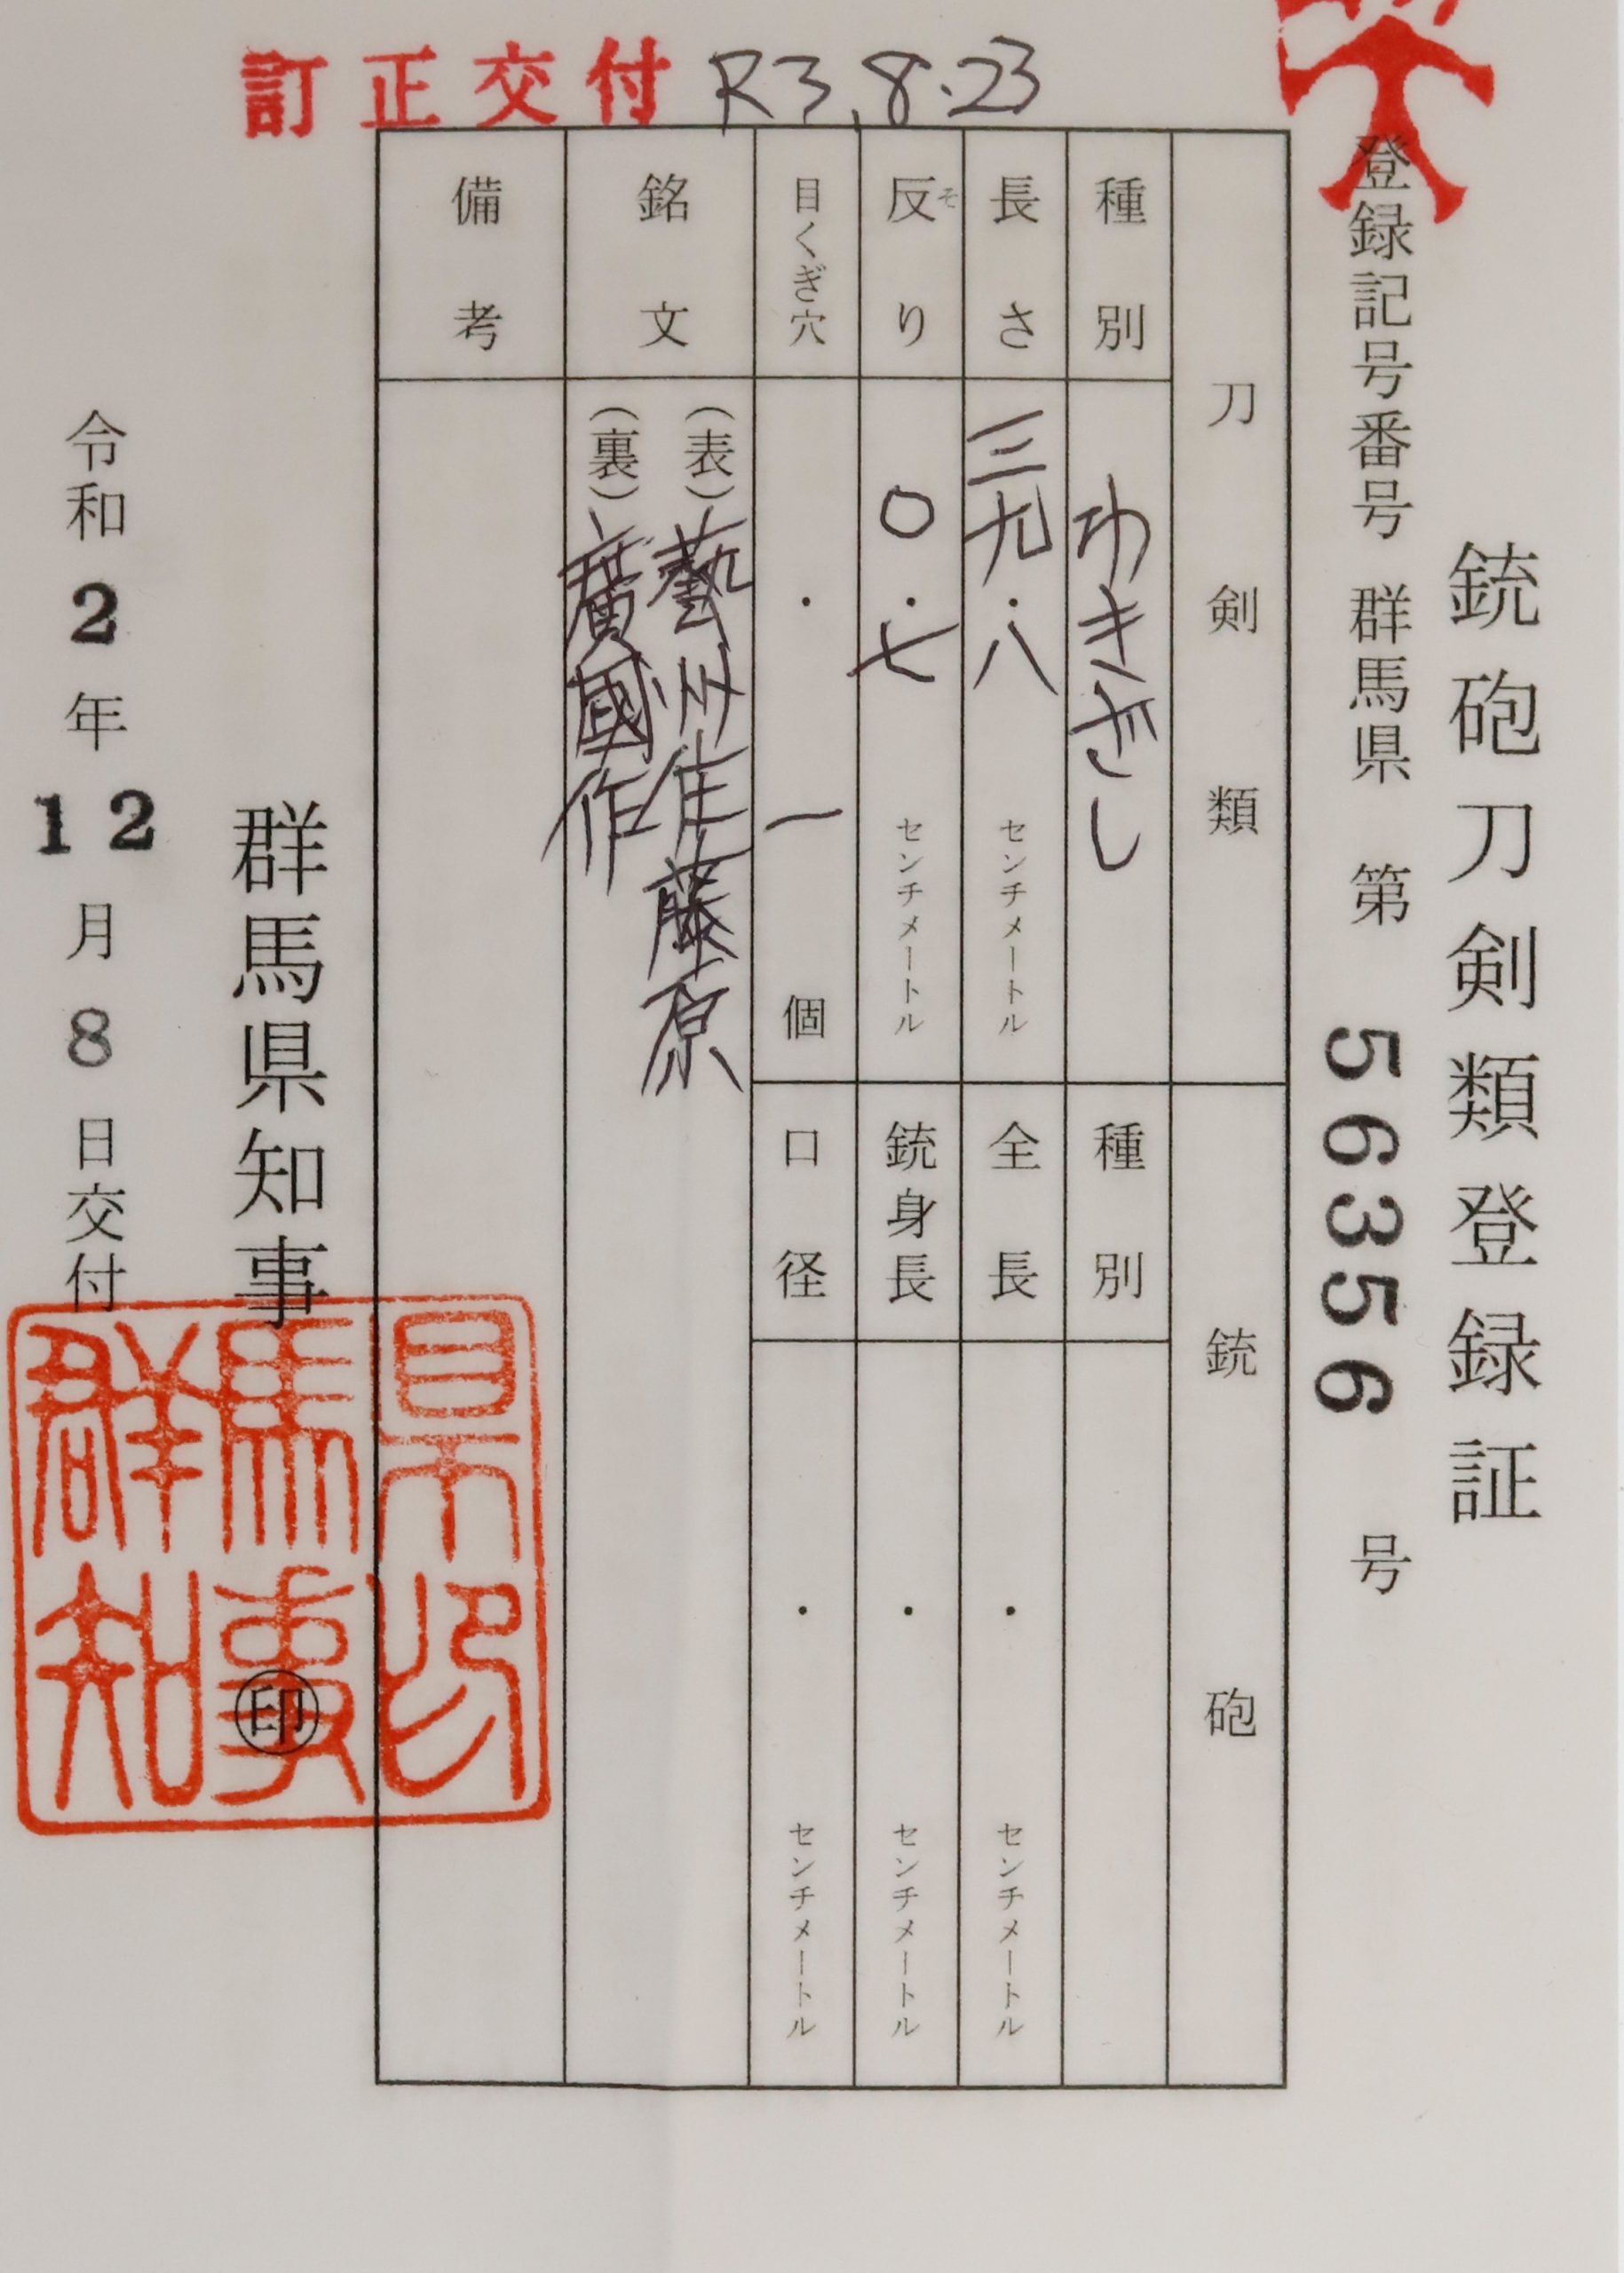 銃砲刀剣類登録証
登録記号番号 群馬県 第 56356 号
刀剣類
種別 わきざし
長さ 三九・八 センチメートル
反り そ 〇・七 センチメートル
目くぎ穴 ・ 一 個
銘文
(表)藝州住藤原
(裏)廣國作
備考
銃砲
種別
全長 ・ センチメートル
銃身長 ・ センチメートル
口径 ・ センチメートル
群馬県知事 印
令和2年12月8日交付
訂正交付 R3.8.23
群馬県知事印